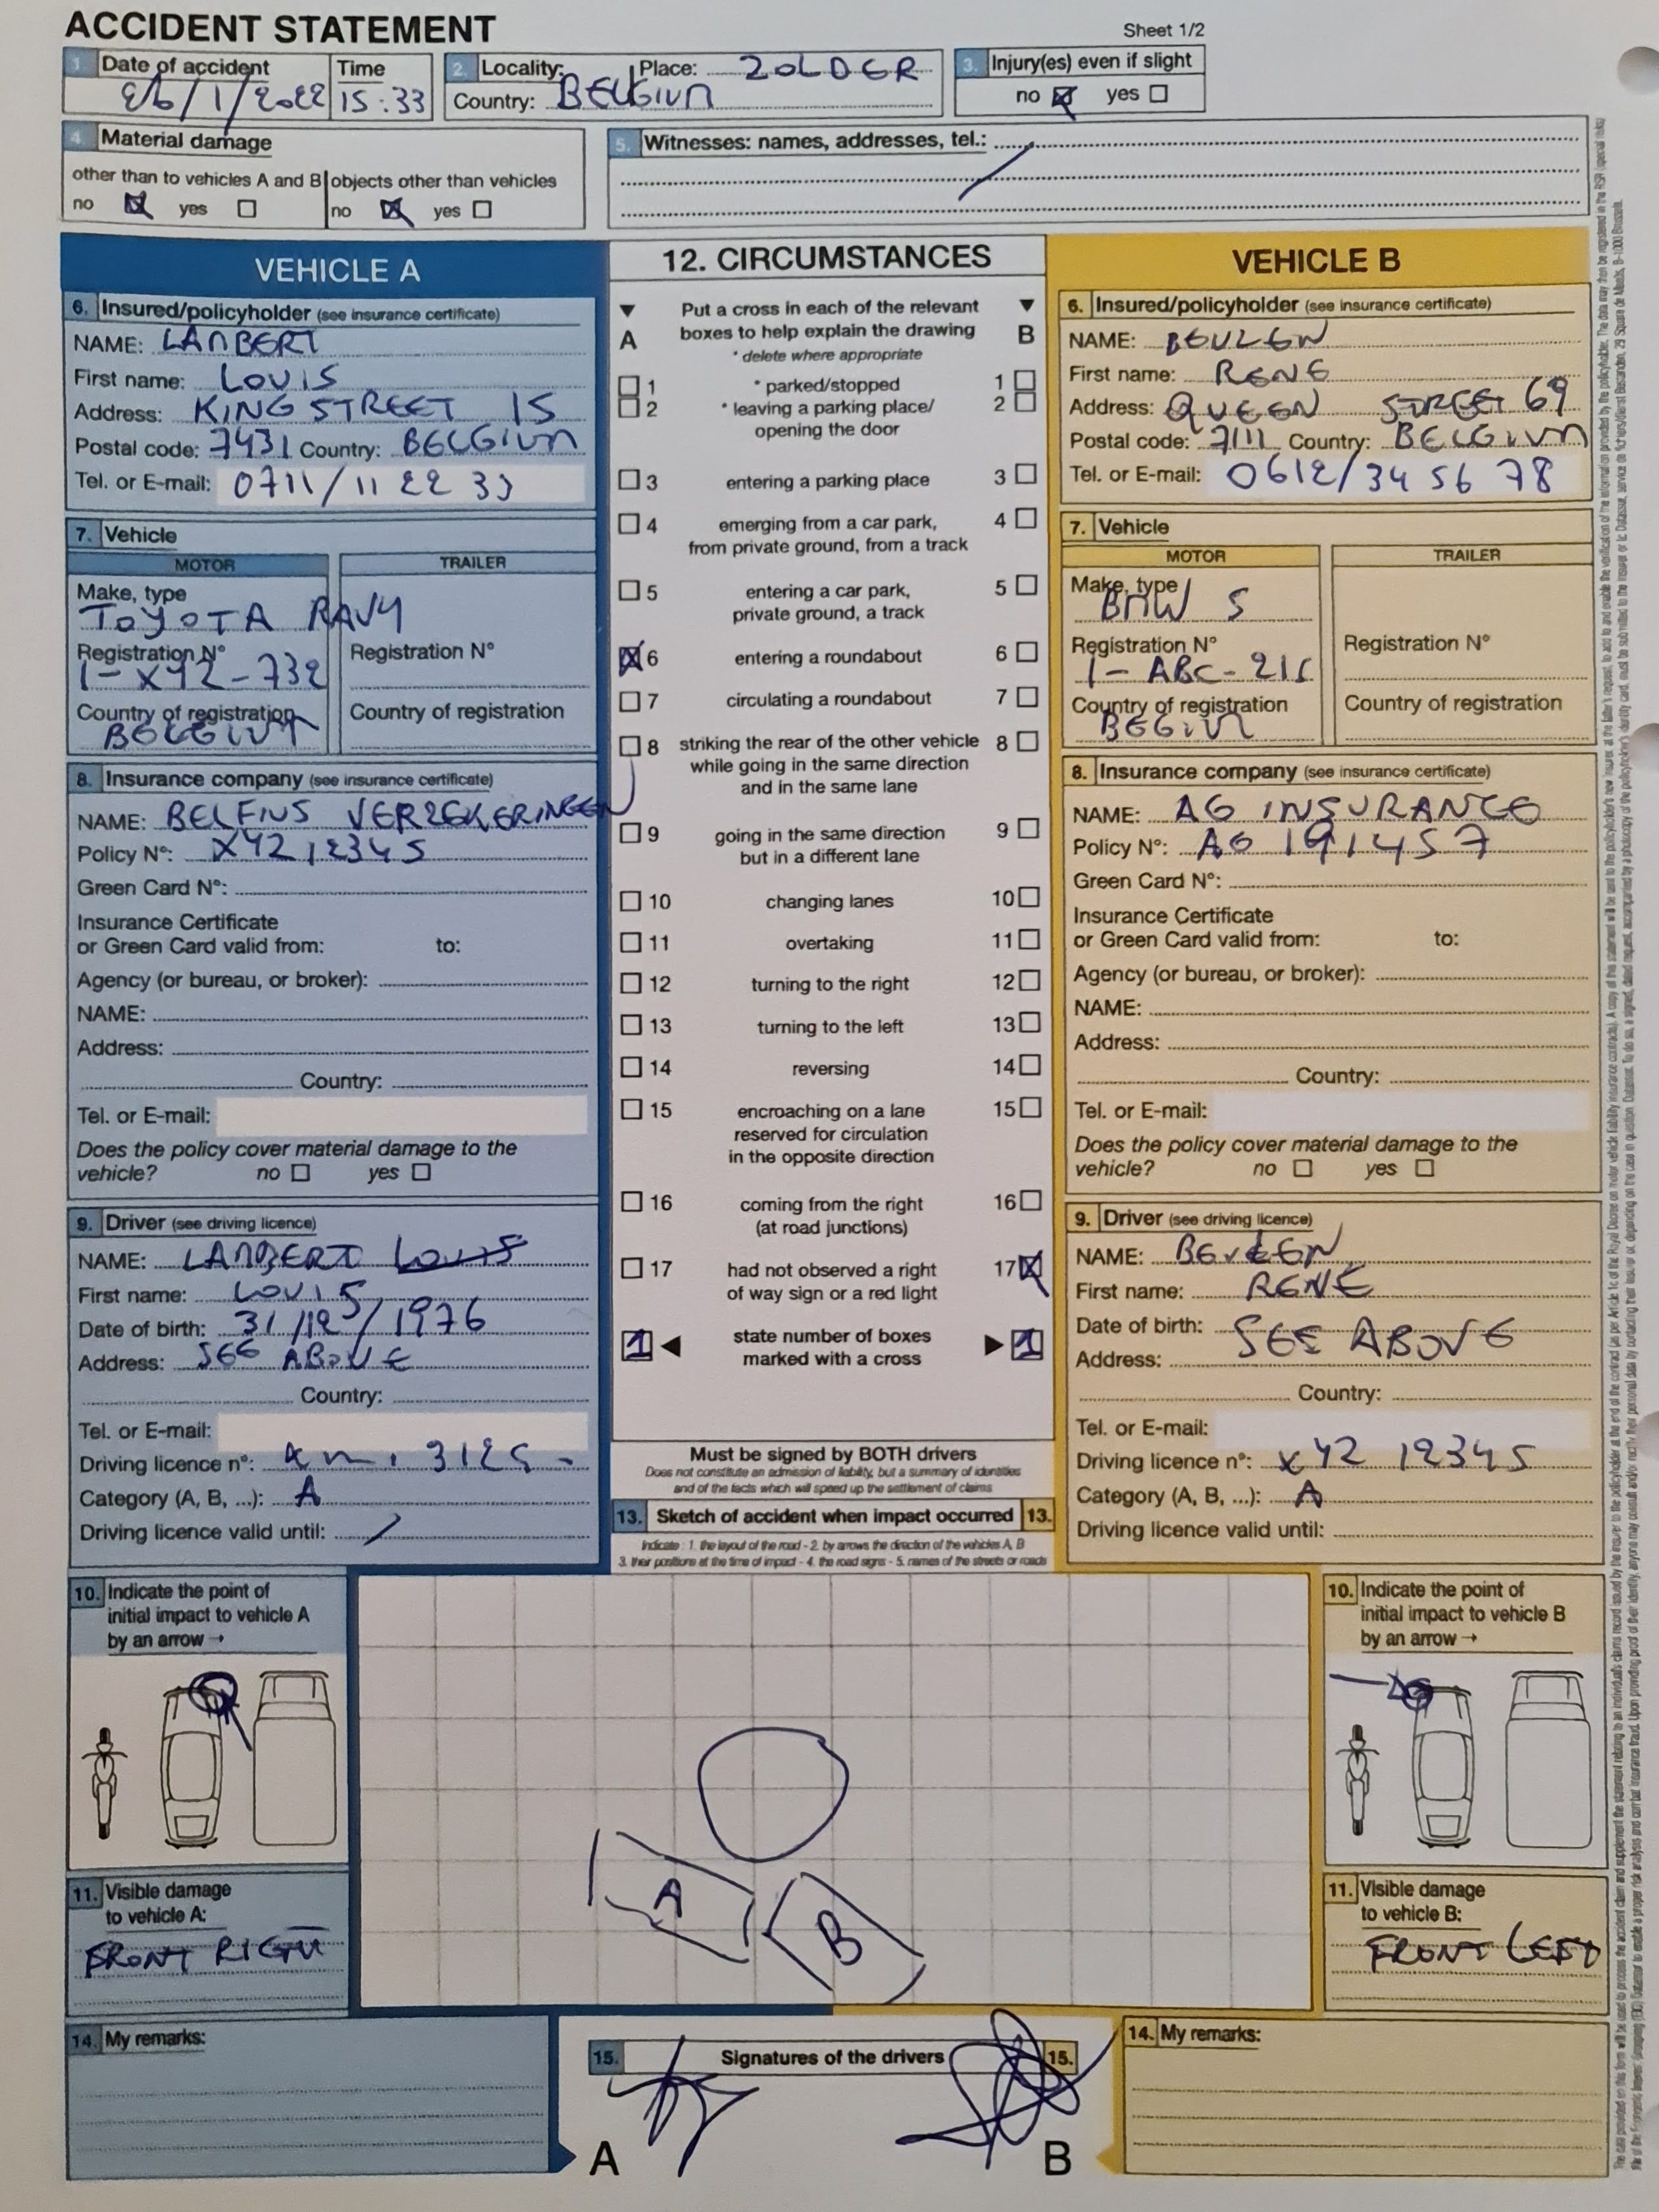 ACCIDENT STATEMENT
Sheet 1/2
1. Date of accident Time
26/1/2022 15:33
2. Locality: Place: ZOLDER
Country: BELGIUM
3. Injury(es) even if slight
no yes
4. Material damage
other than to vehicles A and B objects other than vehicles
no yes no yes
5. Witnesses: names, addresses, tel.:
VEHICLE A
6. Insured/policyholder (see insurance certificate)
NAME: LAMBERT
First name: LOUIS
Address: KING STREET 15
Postal code: 7431 Country: BELGIUM
Tel. or E-mail: 0711/11 22 33
7. Vehicle
MOTOR TRAILER
Make, type
TOYOTA RAV4
Registration N° Registration N°
1-XYZ-732
Country of registration Country of registration
BELGIUM
8. Insurance company (see insurance certificate)
NAME: BELFIUS VERZEKERINGEN
Policy N°: XYZ12345
Green Card N°:
Insurance Certificate
or Green Card valid from: to:
Agency (or bureau, or broker):
NAME:
Address:
Country:
Tel. or E-mail:
Does the policy cover material damage to the
vehicle? no yes
9. Driver (see driving licence)
NAME: LAMBERT
First name: LOUIS
Date of birth: 31/12/1976
Address: SEE ABOVE
Country:
Tel. or E-mail:
Driving licence n°:
Category (A, B, ...): A
Driving licence valid until:
10. Indicate the point of
initial impact to vehicle A
by an arrow →
11. Visible damage
to vehicle A:
FRONT RIGHT
14. My remarks:
12. CIRCUMSTANCES
Put a cross in each of the relevant
A boxes to help explain the drawing B
* delete where appropriate
1 * parked/stopped 1
2 * leaving a parking place/ 2
opening the door
3 entering a parking place 3
4 emerging from a car park, 4
from private ground, from a track
5 entering a car park, 5
private ground, a track
6 entering a roundabout 6
7 circulating a roundabout 7
8 striking the rear of the other vehicle 8
while going in the same direction
and in the same lane
9 going in the same direction 9
but in a different lane
10 changing lanes 10
11 overtaking 11
12 turning to the right 12
13 turning to the left 13
14 reversing 14
15 encroaching on a lane 15
reserved for circulation
in the opposite direction
16 coming from the right 16
(at road junctions)
17 had not observed a right 17
of way sign or a red light
1 state number of boxes 1
marked with a cross
Must be signed by BOTH drivers
Does not constitute an admission of liability, but a summary of identities
and of the facts which will speed up the settlement of claims
13. Sketch of accident when impact occurred 13.
Indicate : 1. the layout of the road - 2. by arrows the direction of the vehicles A, B
3. their positions at the time of impact - 4. the road signs - 5. names of the streets or roads
A
B
15. Signatures of the drivers 15.
A B
VEHICLE B
6. Insured/policyholder (see insurance certificate)
NAME: BEULEN
First name: RENE
Address: QUEEN STREET 69
Postal code: 7111 Country: BELGIUM
Tel. or E-mail: 0612/34 56 78
7. Vehicle
MOTOR TRAILER
Make, type
BMW 5
Registration N° Registration N°
1-ABC-215
Country of registration Country of registration
BEGIUM
8. Insurance company (see insurance certificate)
NAME: AG INSURANCE
Policy N°: AG 191457
Green Card N°:
Insurance Certificate
or Green Card valid from: to:
Agency (or bureau, or broker):
NAME:
Address:
Country:
Tel. or E-mail:
Does the policy cover material damage to the
vehicle? no yes
9. Driver (see driving licence)
NAME: BEULEN
First name: RENE
Date of birth:
SEE ABOVE
Address:
Country:
Tel. or E-mail:
Driving licence n°: XYZ 12345
Category (A, B, ...): A
Driving licence valid until:
10. Indicate the point of
initial impact to vehicle B
by an arrow →
11. Visible damage
to vehicle B:
FRONT LEFT
14. My remarks: